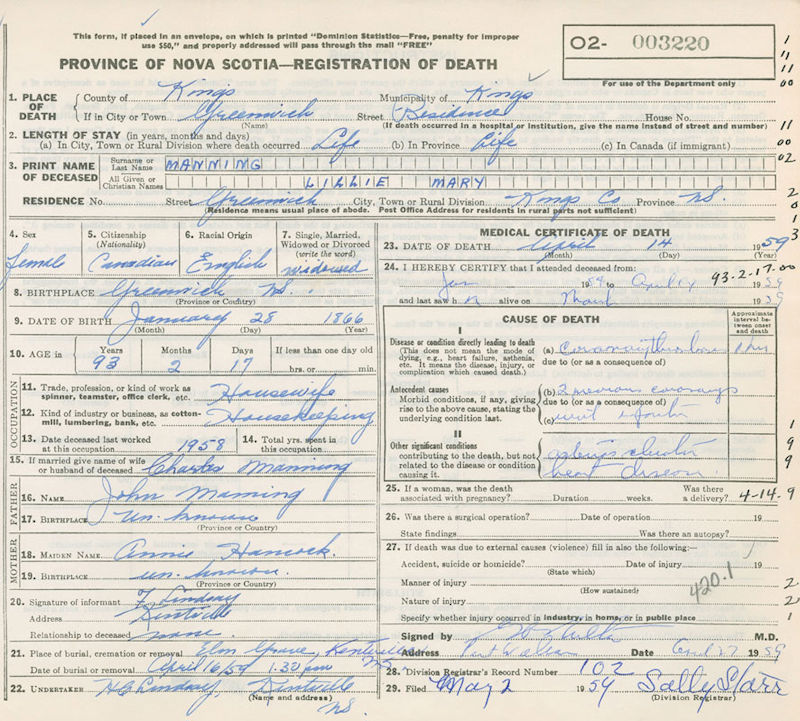 This form, if placed in an envelope, on which is printed "Dominion Statistics—Free, penalty for improper
use $50," and properly addressed will pass through the mail "FREE"
PROVINCE OF NOVA SCOTIA—REGISTRATION OF DEATH
O2- 003220
For use of the Department only
1. PLACE OF DEATH { County of Kings Municipality of Kings
If in City or Town Greenwich Street Residence House No.
(Name) (If death occurred in a hospital or institution, give the name instead of street and number)
2. LENGTH OF STAY (in years, months and days)
(a) In City, Town or Rural Division where death occurred Life (b) In Province Life (c) In Canada (if immigrant)
3. PRINT NAME OF DECEASED { Surname or Last Name MANNING
All Given or Christian Names LILLIE MARY
RESIDENCE No. Street Greenwich City, Town or Rural Division Kings Co Province N.S.
(Residence means usual place of abode. Post Office Address for residents in rural parts not sufficient)
4. Sex
Female
5. Citizenship (Nationality)
Canadian
6. Racial Origin
English
7. Single, Married, Widowed or Divorced (write the word)
Widowed
8. BIRTHPLACE Greenwich N.S.
(Province or Country)
9. DATE OF BIRTH January 28 1866
(Month) (Day) (Year)
10. AGE in Years Months Days If less than one day old
93 2 17 hrs. or min.
OCCUPATION
11. Trade, profession, or kind of work as spinner, teamster, office clerk, etc. Housewife
12. Kind of industry or business, as cotton-mill, lumbering, bank, etc. Housekeeping
13. Date deceased last worked at this occupation 1958
14. Total yrs. spent in this occupation
15. If married give name of wife or husband of deceased Charles Manning
FATHER
16. NAME John Manning
17. BIRTHPLACE un-known
(Province or Country)
MOTHER
18. MAIDEN NAME Annie Hancock
19. BIRTHPLACE un-known
(Province or Country)
20. Signature of informant F Lindsay
Address Kentville
Relationship to deceased none
21. Place of burial, cremation or removal Elm Grove, Kentville NS
Date of burial or removal April 16/59 1.30 pm
22. UNDERTAKER H C Lindsay, Kentville
(Name and address)
N.S.
MEDICAL CERTIFICATE OF DEATH
23. DATE OF DEATH April 14 1959
(Month) (Day)
24. I HEREBY CERTIFY that I attended deceased from: 93-2-17.00
Jan 1959 to April 14 1959
and last saw h er alive on March 1959
CAUSE OF DEATH
Approximate interval between onset and death
I
Disease or condition directly leading to death
(This does not mean the mode of dying, e.g., heart failure, asthenia, etc. It means the disease, injury, or complication which caused death.)
(a) Coronary thrombosis
due to (or as a consequence of)
Antecedent causes
Morbid conditions, if any, giving rise to the above cause, stating the underlying condition last.
(b) 2 previous coronarys
due to (or as a consequence of)
(c)
II
Other significant conditions
contributing to the death, but not related to the disease or condition causing it.
heart disease
25. If a woman, was the death associated with pregnancy? Duration weeks. Was there a delivery? 4-14.9
26. Was there a surgical operation? Date of operation 19
State findings Was there an autopsy?
27. If death was due to external causes (violence) fill in also the following:—
Accident, suicide or homicide? Date of injury 19
(State which)
Manner of injury
(How sustained)
420.1
Nature of injury
Specify whether injury occurred in industry, in home, or in public place
Signed by M.D.
Address Port Williams Date April 27 1959
28. Division Registrar's Record Number 102
29. Filed May 2 1959 Sally Starr
(Division Registrar)
1
11
11
00
11
00
02
2
0
1
3
1
9
9
2
2
1